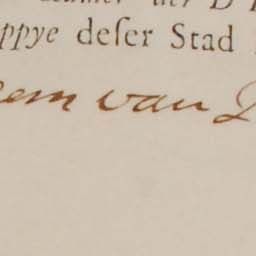 der D
ppye deſer Stad
em van